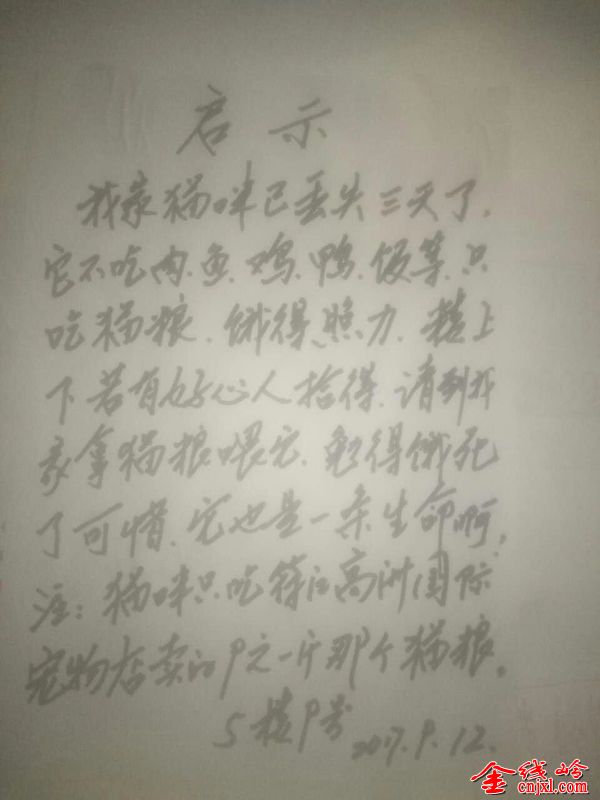 启示
我家猫咪已丢失三天了,
它不吃肉、鱼、鸡、鸭、饭等、只
吃猫粮、饿得、照力、楼上
下若有好心人捡得、请到我
家拿猫粮喂它、免得饿死
了可惜、它也是一条生命啊,
注:猫咪只吃锦江高洲国际
宠物店卖的9元一斤那个猫粮。
5楼9号 2017.9.12.
金线岭
cnjxl.com